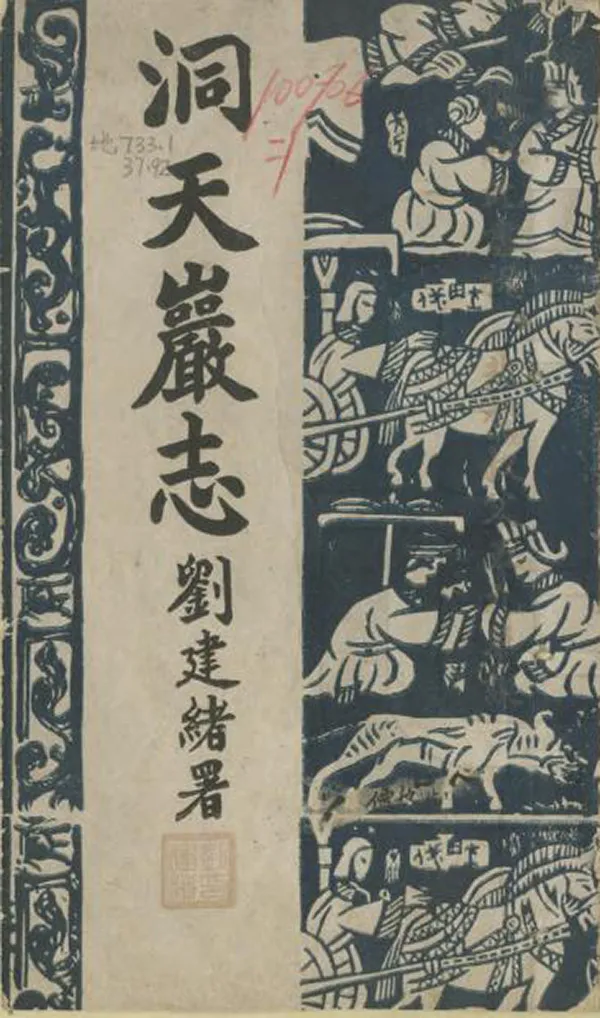 洞天巖志
劉建緒署
100706
二
地733.1
37.92